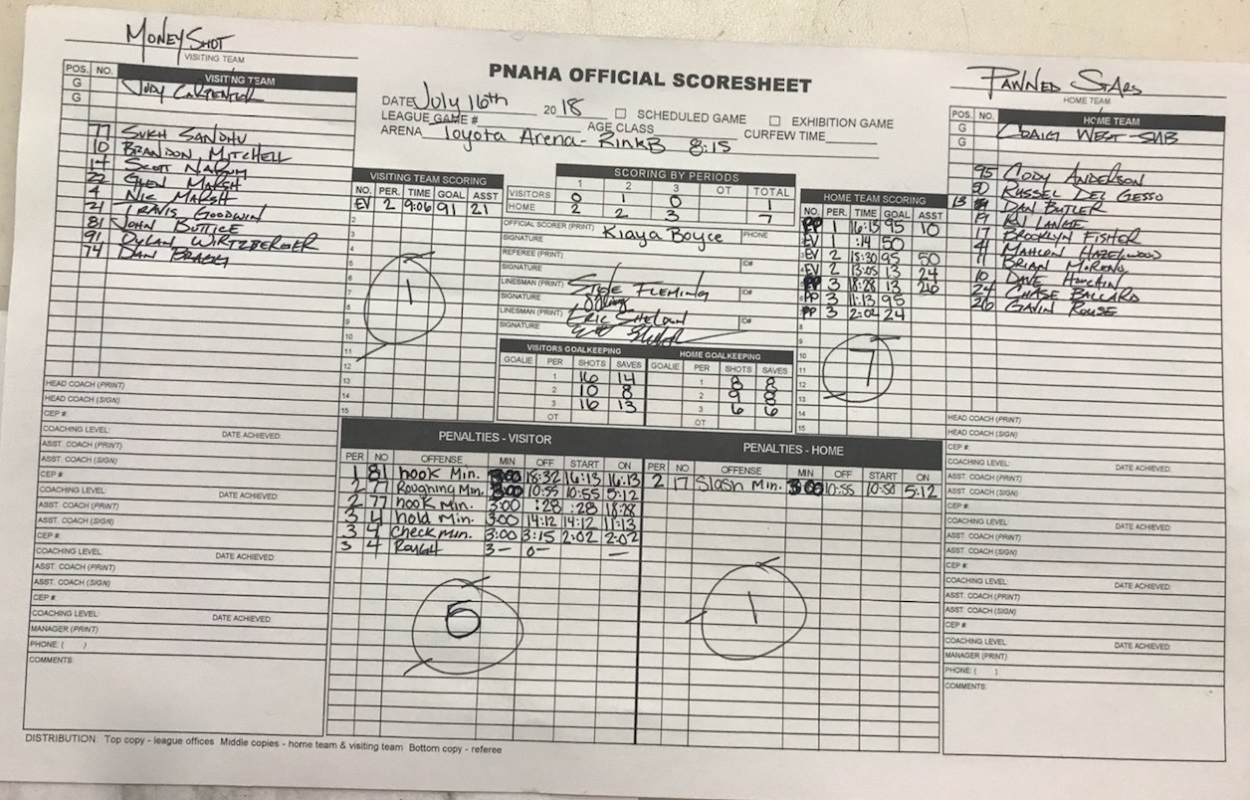 Money Shot
VISITING TEAM
PNAHA OFFICIAL SCORESHEET
Pawned Stars
HOME TEAM
DATE July 16th 2018 □ SCHEDULED GAME □ EXHIBITION GAME
LEAGUE GAME # AGE CLASS CURFEW TIME
ARENA Toyota Arena - Rink B 8:15
POS. NO. VISITING TEAM
G Jody Carpenter
G
77 Sukh Sandhu
10 Brandon Mitchell
14 Scott
22 Glen Marsh
4 Nic Marsh
21 Travis Goodwin
81 John Buttice
91 Dylan Wirtzberger
74 Dan Brady
HEAD COACH (PRINT)
HEAD COACH (SIGN)
CEP #:
COACHING LEVEL: DATE ACHIEVED:
ASST. COACH (PRINT)
ASST. COACH (SIGN)
CEP #:
COACHING LEVEL: DATE ACHIEVED:
ASST. COACH (PRINT)
ASST. COACH (SIGN)
CEP #:
COACHING LEVEL: DATE ACHIEVED:
ASST. COACH (PRINT)
ASST. COACH (SIGN)
CEP #:
COACHING LEVEL: DATE ACHIEVED:
MANAGER (PRINT)
PHONE: ( )
COMMENTS:
VISITING TEAM SCORING
NO. PER. TIME GOAL ASST
EV 2 9:06 91 21
2
3
4
5
6
7
8
9
10
11
12
13
14
15
1
SCORING BY PERIODS
1 2 3 OT TOTAL
VISITORS 0 1 0 1
HOME 2 2 3 7
OFFICIAL SCORER (PRINT) Kiaya Boyce PHONE
SIGNATURE
REFEREE (PRINT) ID#
SIGNATURE
LINESMAN (PRINT) Steve Fleming ID#
SIGNATURE
LINESMAN (PRINT) Eric ID#
SIGNATURE
VISITORS GOALKEEPING HOME GOALKEEPING
GOALIE PER SHOTS SAVES GOALIE PER SHOTS SAVES
1 16 14 1 8 8
2 10 8 2 9 8
3 16 13 3 6 6
OT OT
HOME TEAM SCORING
NO. PER. TIME GOAL ASST
PP 1 16:13 95 10
EV 1 :14 50
EV 2 15:30 95 50
EV 2 13:05 13 24
PP 3 18:28 13 26
PP 3 11:13 95
PP 3 2:02 24
8
9
10
11
12
13
14
15
7
POS. NO. HOME TEAM
G Craig West - SUB
G
95 Cody Anderson
50 Russel Del Gesso
13 Dan Butler
19 Ky Lange
17 Brooklyn Fisher
41 Mahlon Hazelwood
11 Brian Moreno
10 Dave
24 Chase Ballard
26 Gavin Rouse
HEAD COACH (PRINT)
HEAD COACH (SIGN)
CEP #:
COACHING LEVEL: DATE ACHIEVED:
ASST. COACH (PRINT)
ASST. COACH (SIGN)
CEP #:
COACHING LEVEL: DATE ACHIEVED:
ASST. COACH (PRINT)
ASST. COACH (SIGN)
CEP #:
COACHING LEVEL: DATE ACHIEVED:
ASST. COACH (PRINT)
ASST. COACH (SIGN)
CEP #:
COACHING LEVEL: DATE ACHIEVED:
MANAGER (PRINT)
PHONE: ( )
COMMENTS:
PENALTIES - VISITOR
PER NO OFFENSE MIN OFF START ON
1 81 hook Min. 3:00 18:32 16:13 16:13
2 77 Roughing Min. 3:00 10:55 10:55 5:12
2 77 hook Min. 3:00 :28 :28 18:28
3 4 hold Min. 3:00 14:12 14:12 11:13
3 4 check min. 3:00 3:15 2:02 2:02
3 4 Rough 3- 0- -
5
PENALTIES - HOME
PER NO OFFENSE MIN OFF START ON
2 17 Slash Min. 3:00 10:55 10:50 5:12
1
DISTRIBUTION: Top copy - league offices Middle copies - home team & visiting team Bottom copy - referee